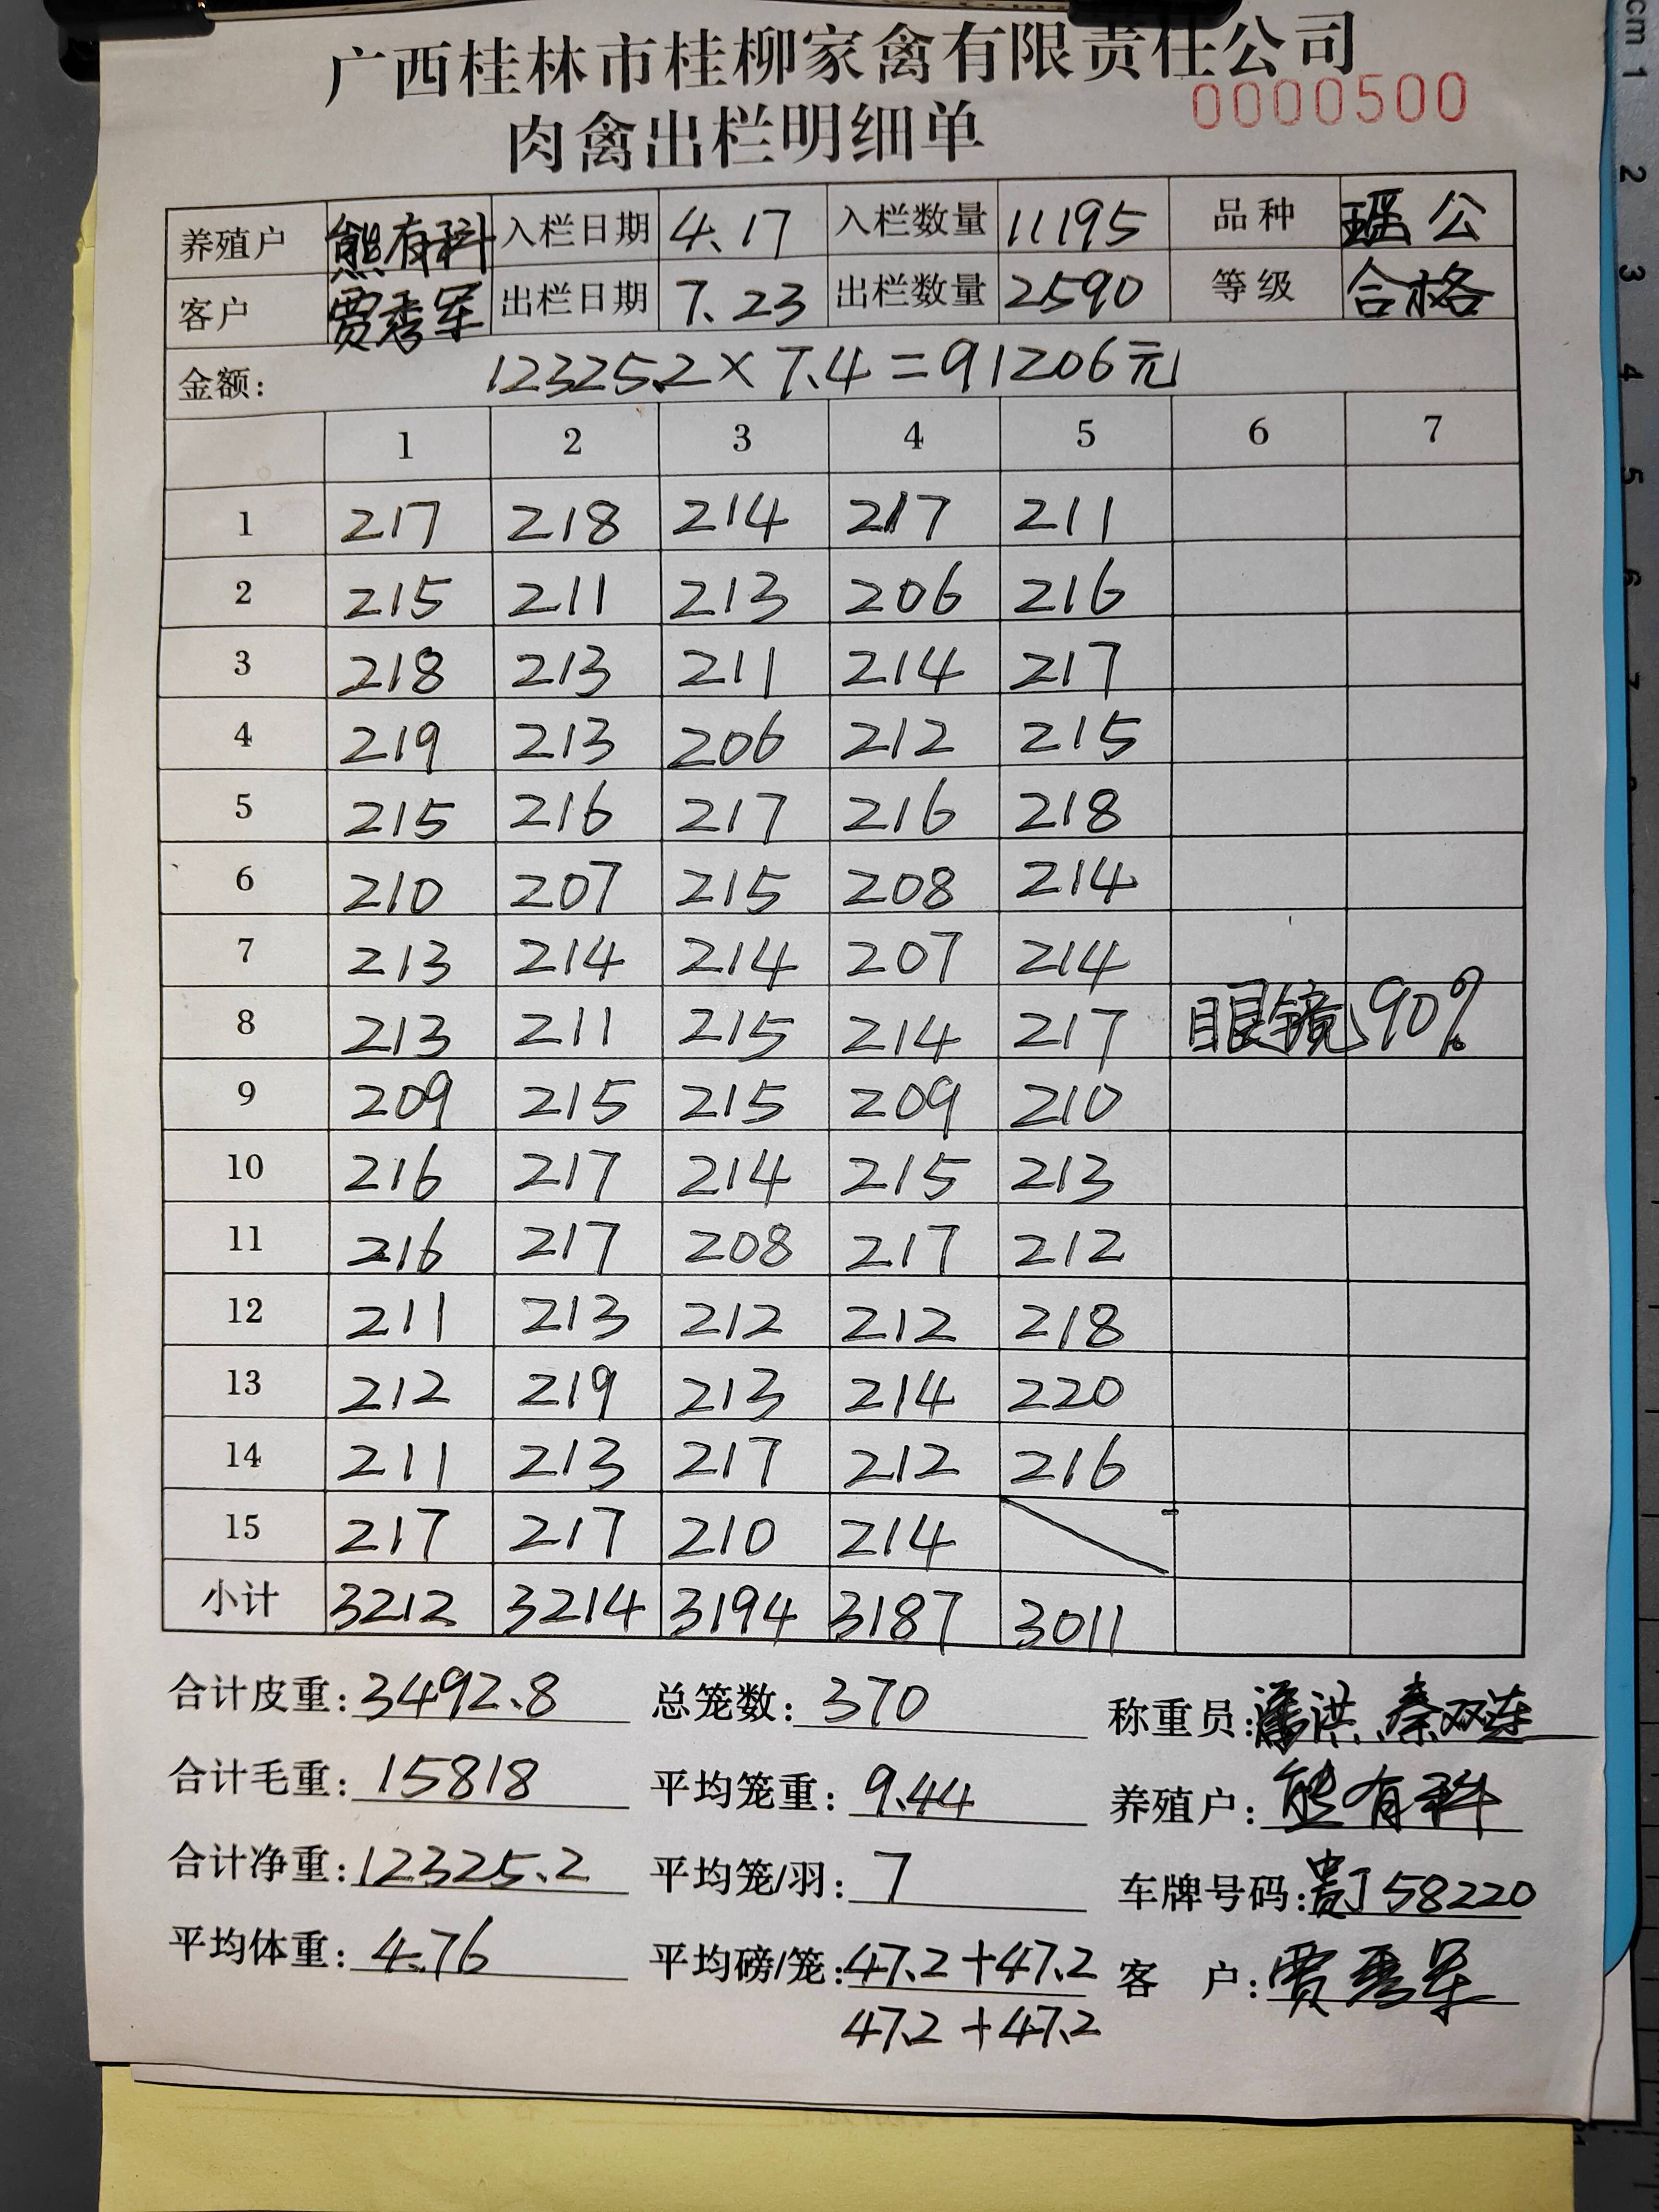 广西桂林市桂柳家禽有限责任公司
0000500
肉禽出栏明细单
养殖户 熊有科 入栏日期 4.17 入栏数量 11195 品种 瑶公
客户 贾秀军 出栏日期 7.23 出栏数量 2590 等级 合格
金额: 12325.2×7.4=91206元
1 2 3 4 5 6 7
1 217 218 214 217 211
2 215 211 213 206 216
3 218 213 211 214 217
4 219 213 206 212 215
5 215 216 217 216 218
6 210 207 215 208 214
7 213 214 214 207 214
8 213 211 215 214 217 眼镜90%
9 209 215 215 209 210
10 216 217 214 215 213
11 216 217 208 217 212
12 211 213 212 212 218
13 212 219 213 214 220
14 211 213 217 212 216
15 217 217 210 214
小计 3212 3214 3194 3187 3011
合计皮重: 3492.8 总笼数: 370 称重员: 潘洪、秦双连
合计毛重: 15818 平均笼重: 9.44 养殖户: 熊有科
合计净重: 12325.2 平均笼/羽: 7 车牌号码: 贵J58220
平均体重: 4.76 平均磅/笼: 47.2+47.2 客 户: 贾秀军
47.2+47.2
cm 1 2 3 4 5 6 7